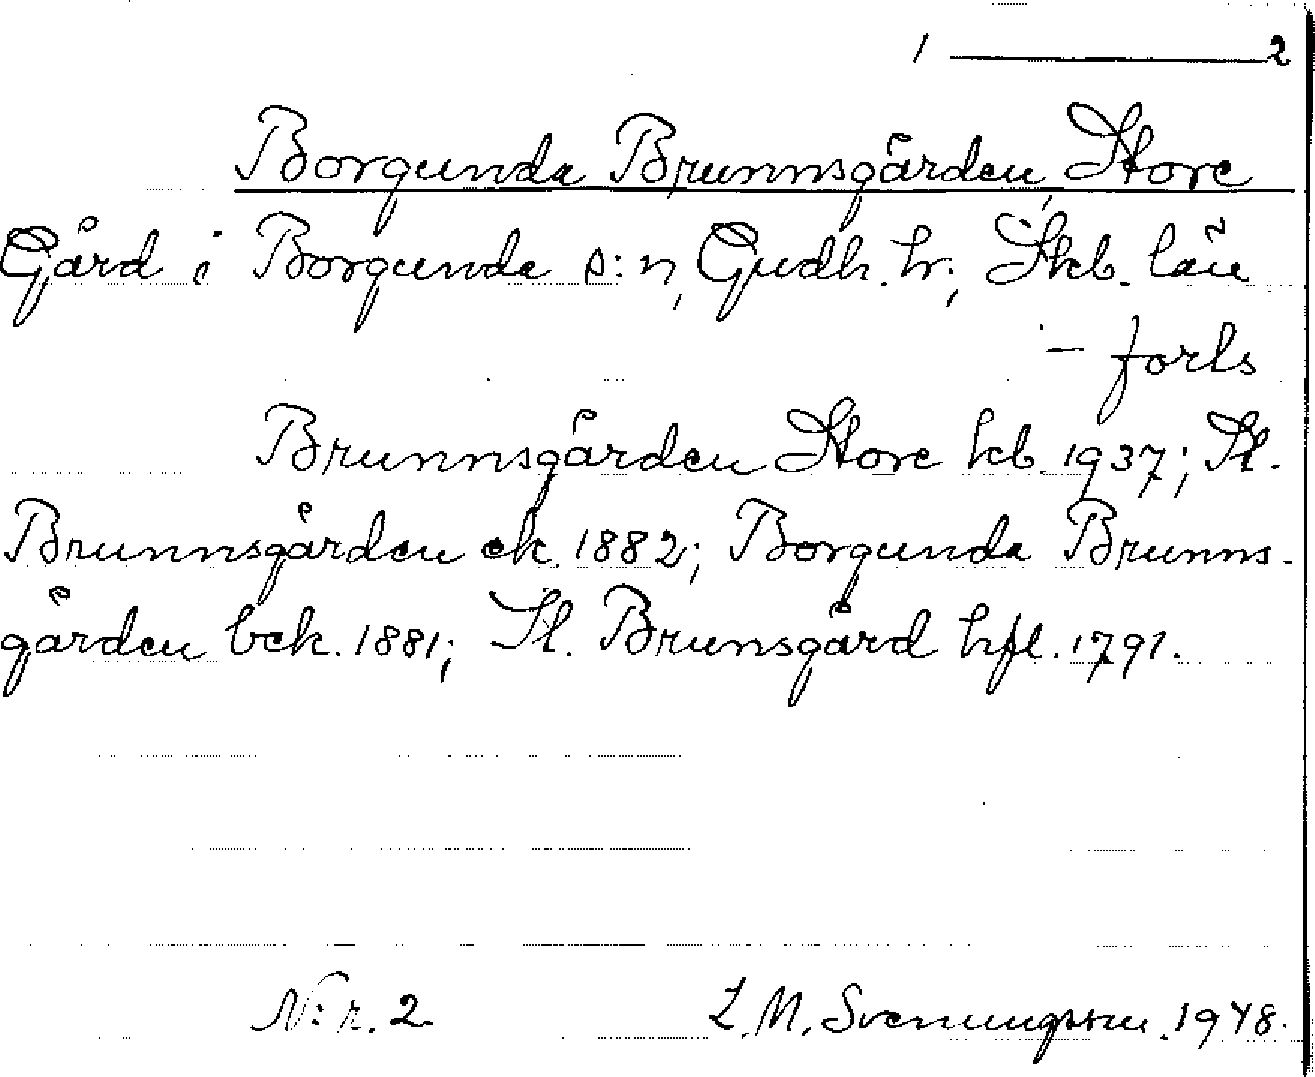 1 ――― 2
Borgunda Brunnsgården, Store
Gård i Borgunda s:n, Gudh. hr; Skb. län
– forts
Brunnsgården Store kb 1937; St.
Brunnsgården ek. 1882; Borgunda Brunns-
gården bek. 1881; St. Brunsgård hfl. 1791.
N:r. 2 L. M. Svenungsson. 1948.